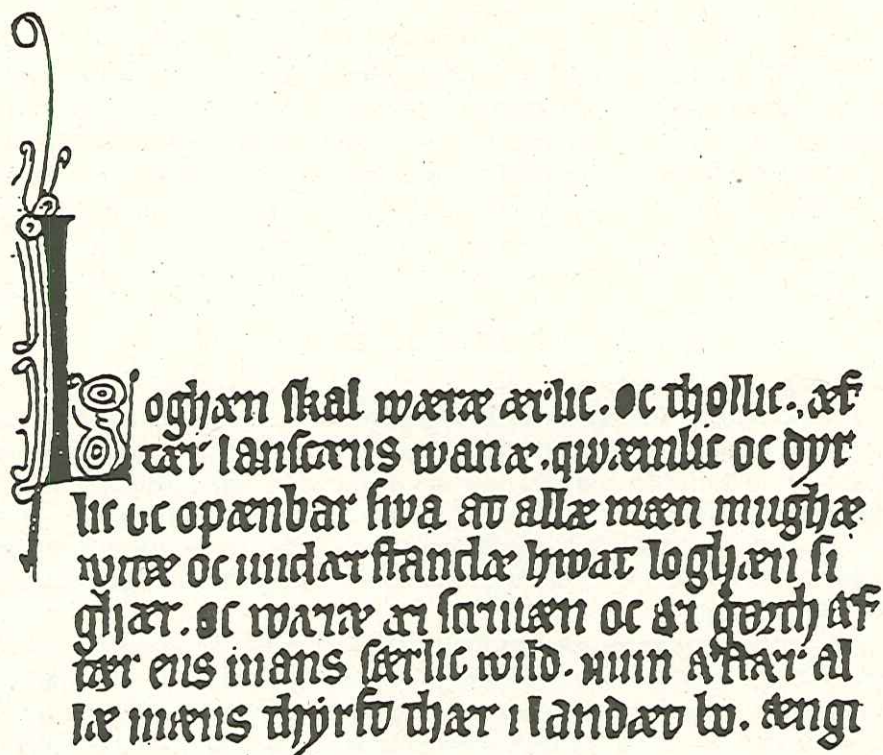 Loghæn skal wæræ ærlic. oc thollic., æf
tær lanscæns wanæ. qwæmlic oc dyr
lic oc opænbar swa at allæ mæn mughæ
witæ oc undærstandæ hwat loghæn si
ghær. oc wæræ æi scriuæn oc æi gørth æf
tær ens mans særlic wild. num æftær al
læ mæns thyrft thær i landæt bo. ængi